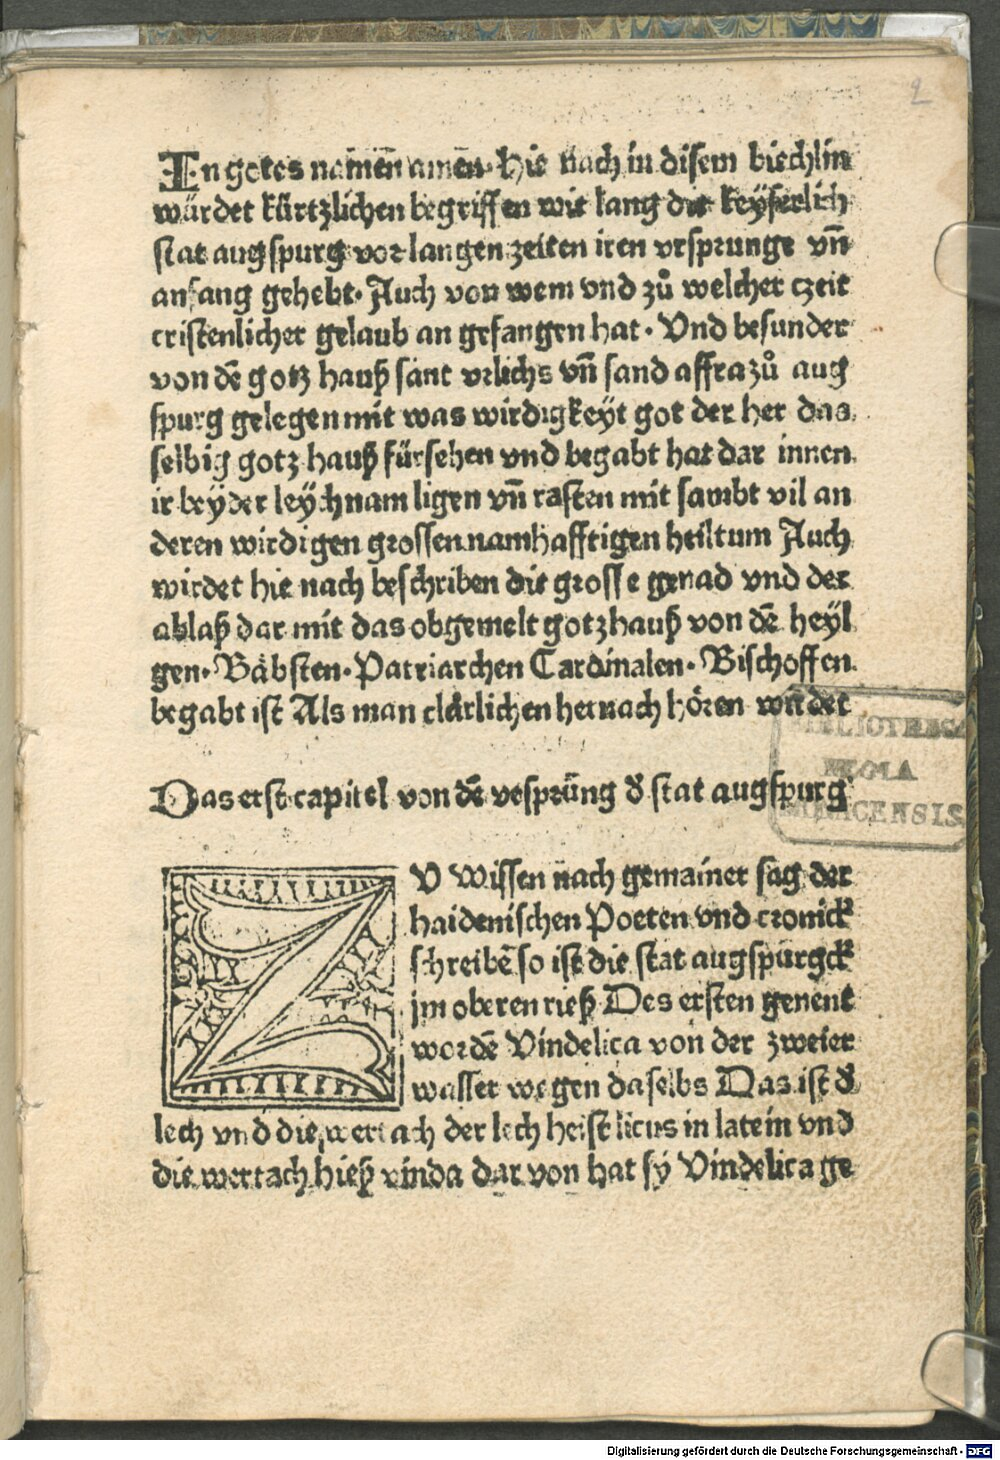 2
In gotes namen̄ amen̄. Hie nach in disem biechlin
würdet kürtzlichen begriffen wie lang die keÿserlich
stat augspurg vor langen zeiten iren vrsprunge vn̄
anfang gehebt. Auch von wem vnd zů welcher czeit
cristenlicher gelaub an gefangen hat. Vnd besunder
von dē gotz hauß sant vrlichs vn̄ sand affra zů aug
spurg gelegen mit was wirdigkeÿt got der her das
selbig gotz hauß fürsehen vnd begabt hat dar innen
ir beÿder leÿchnam ligen vn̄ rasten mit sambt vil an
deren wirdigen grossen namhafftigen heiltum Auch
wirdet hie nach beschriben die grosse genad vnd der
ablaß dar mit das obgemelt gotzhauß von dē heÿl
gen. Bäbsten. Patriarchen Cardinalen. Bischoffen
begabt ist Als man clärlichen hernach hören würdet
Das erst capitel von dē vrsprūng d̕ stat augspurg
ZV wissen nach gemainer sag der
haidenischen Poeten vnd cronick
schreibē so ist die stat augspurgck
jm oberen rieß Des ersten genent
wordē Vindelica von der zweier
wasser wegen daselbs Das ist d̕
lech vnd die wertach der lech heist licus in latein vnd
die wertach hieß vinda dar von hat sÿ Vindelica ge
BIBLIOTHECA
REGIA
MONACENSIS
Digitalisierung gefördert durch die Deutsche Forschungsgemeinschaft - DFG